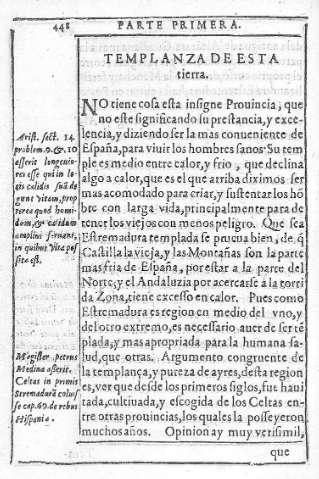 448
PARTE PRIMERA.
TEMPLANZA DE ESTA
tierra.
NO tiene cosa esta insigne Prouincia, que
no este significando su prestancia, y exce-
lencia, y diziendo ser la mas conueniente de
España, para viuir los hombres sanos. Su tem
ple es medio entre calor, y frio, que declina
algo a calor, que es el que arriba diximos ser
mas acomodado para criar, y sustentar los hõ
bre con larga vida, principalmente para de
tener los viejos con menos peligro. Que sea
Estremadura templada se prueua bien, de q̃
Castilla la vieja, y las Montañas son la parte
mas fria de España, por estar a la parte del
Norte, y el Andaluzia por acercarse à la torri
da Zona, tiene excesso en calor. Pues como
Estremadura es region en medio del vno, y
del otro extremo, es necessario auer de ser tẽ
plada, y mas apropriada para la humana sa-
lud, que otras. Argumento congruente de
la templança, y pureza de ayres, desta region
es, ver que desde los primeros siglos, fue haui
tada, cultiuada, y escogida de los Celtas en-
tre otras prouincias, los quales la posseyeron
muchos años. Opinion ay muy verisimil,
que
Arist. sect. 14
problem. 9. & 10
asserit longeuio-
res esse qui in lo-
gis calidis suã de
gunt vitam, prop
terea quod humi-
dum, & calidum
amplius seruant,
in quibus vita pos
sita est.
Magister petrus
Medina asserit.
Celtas in primis
Stremadurã coluis
se cap. 60. de rebus
Hispaniæ.